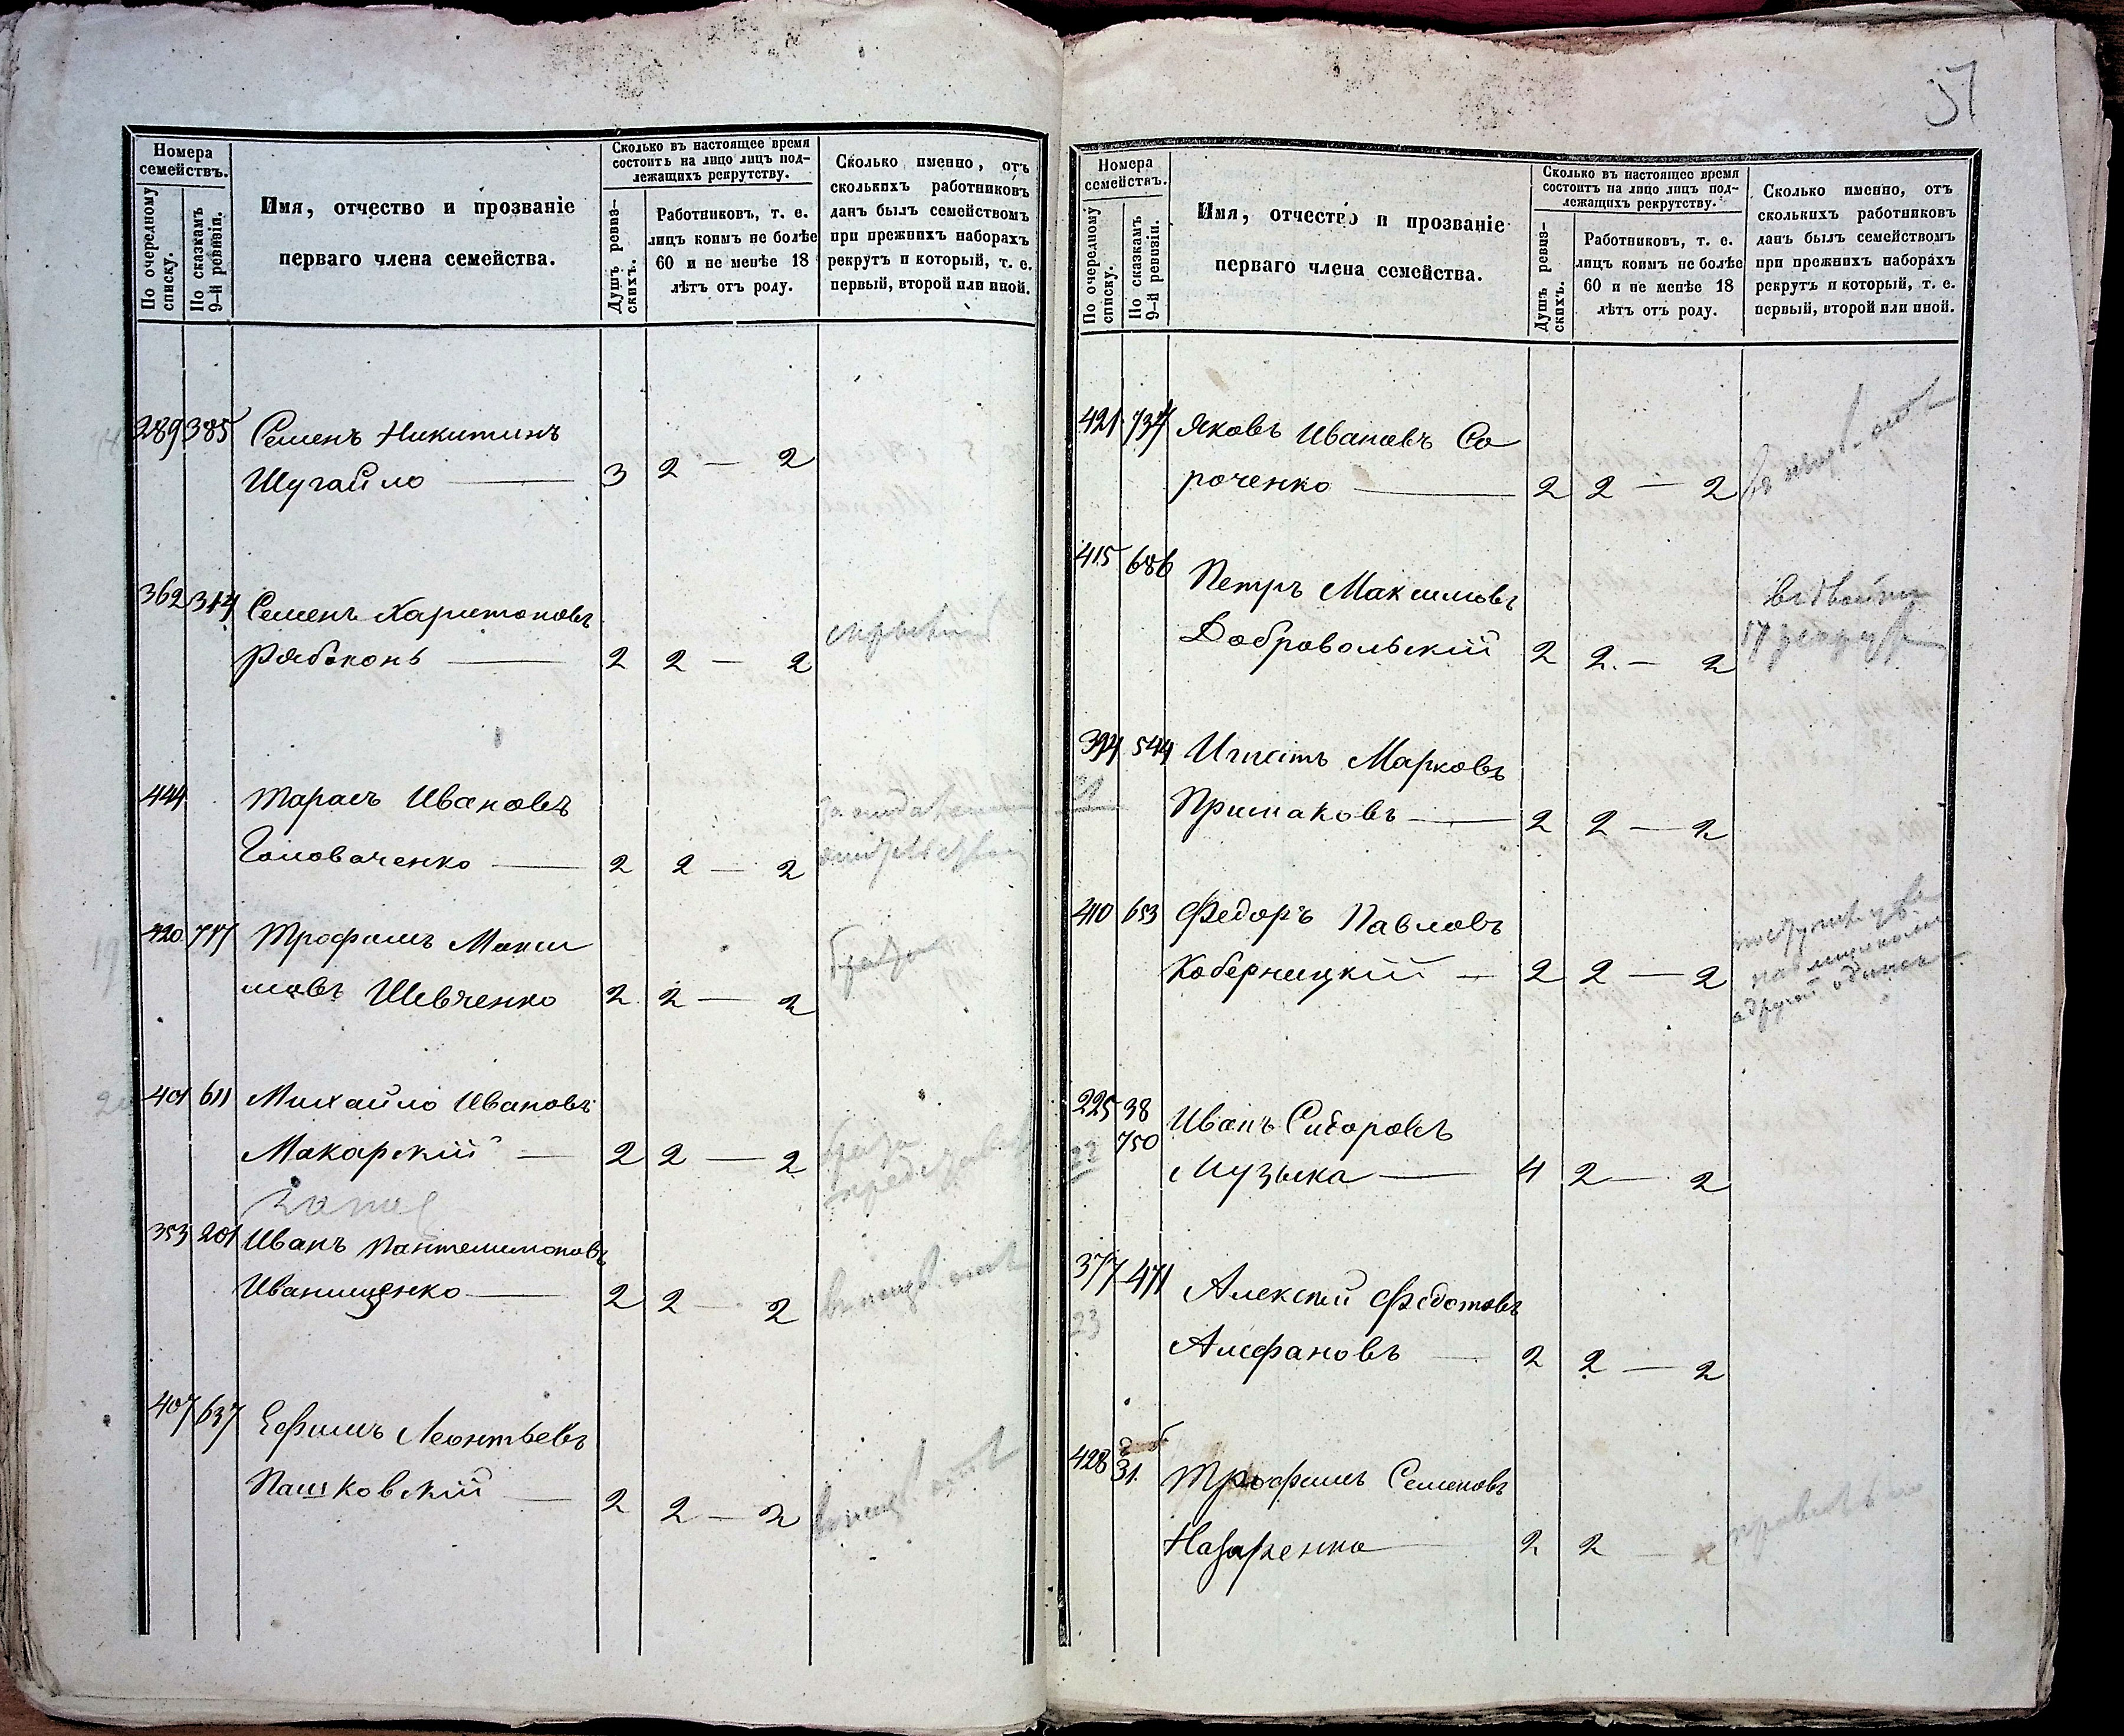 Номера семействъ.
По очередному списку.
По сказкамъ 9-й ревизіи.
Имя, отчество и прозваніе
перваго члена семейства.
Сколько въ настоящее время
состоитъ на лицо лицъ под-
лежащихъ рекрутству.
Душъ ревиз-
скихъ.
Работниковъ, т. е.
лицъ коимъ не болѣе
60 и не менѣе 18
лѣтъ отъ роду.
Сколько именно, отъ
сколькихъ работниковъ
данъ былъ семействомъ
при прежнихъ наборахъ
рекрутъ и который, т. е.
первый, второй или иной.
289 385 Семенъ Никитинъ
Шугайло 3 2 — 2
362 314 Семенъ Харитоновъ
Рябоконь 2 2 — 2
444 Тарасъ Ивановъ
Головаченко 2 2 — 2
19 420 747 Трофимъ Макси
мовъ Шевченко 2 2 — 2
401 611 Михайло Ивановъ
Макарскій 2 2 — 2
353 201 Иванъ Пантелимоновъ
Иванищенко 2 2 — 2
407 637 Ефимъ Леонтьевъ
Пашковскій 2 2 — 2
37
Номера
семействъ.
По очередному
списку.
По сказкамъ
9-й ревизіи.
Имя, отчество и прозваніе
перваго члена семейства.
Сколько въ настоящее время
состоитъ на лицо лицъ под-
лежащихъ рекрутству.
Душъ ревиз-
скихъ.
Работниковъ, т. е.
лицъ коимъ не болѣе
60 и не менѣе 18
лѣтъ отъ роду.
Сколько именно, отъ
сколькихъ работниковъ
данъ былъ семействомъ
при прежнихъ наборахъ
рекрутъ и который, т. е.
первый, второй или иной.
421 737 Яковъ Ивановъ Со
роченко 2 2 — 2
415 686 Петръ Максимовъ
Добровольскій 2 2 — 2
394 544 Игнатъ Марковъ
21 Примаковъ 2 2 — 2
410 653 Федоръ Павловъ
Коберницкій 2 2 — 2
225 38 Иванъ Сидоровъ
22 750
Музыка 4 2 — 2
377 471 Алексѣй Федотовъ
23 Алефановъ 2 2 — 2
428 31. Трофимъ Семеновъ
Назаренко 2 2 — 2